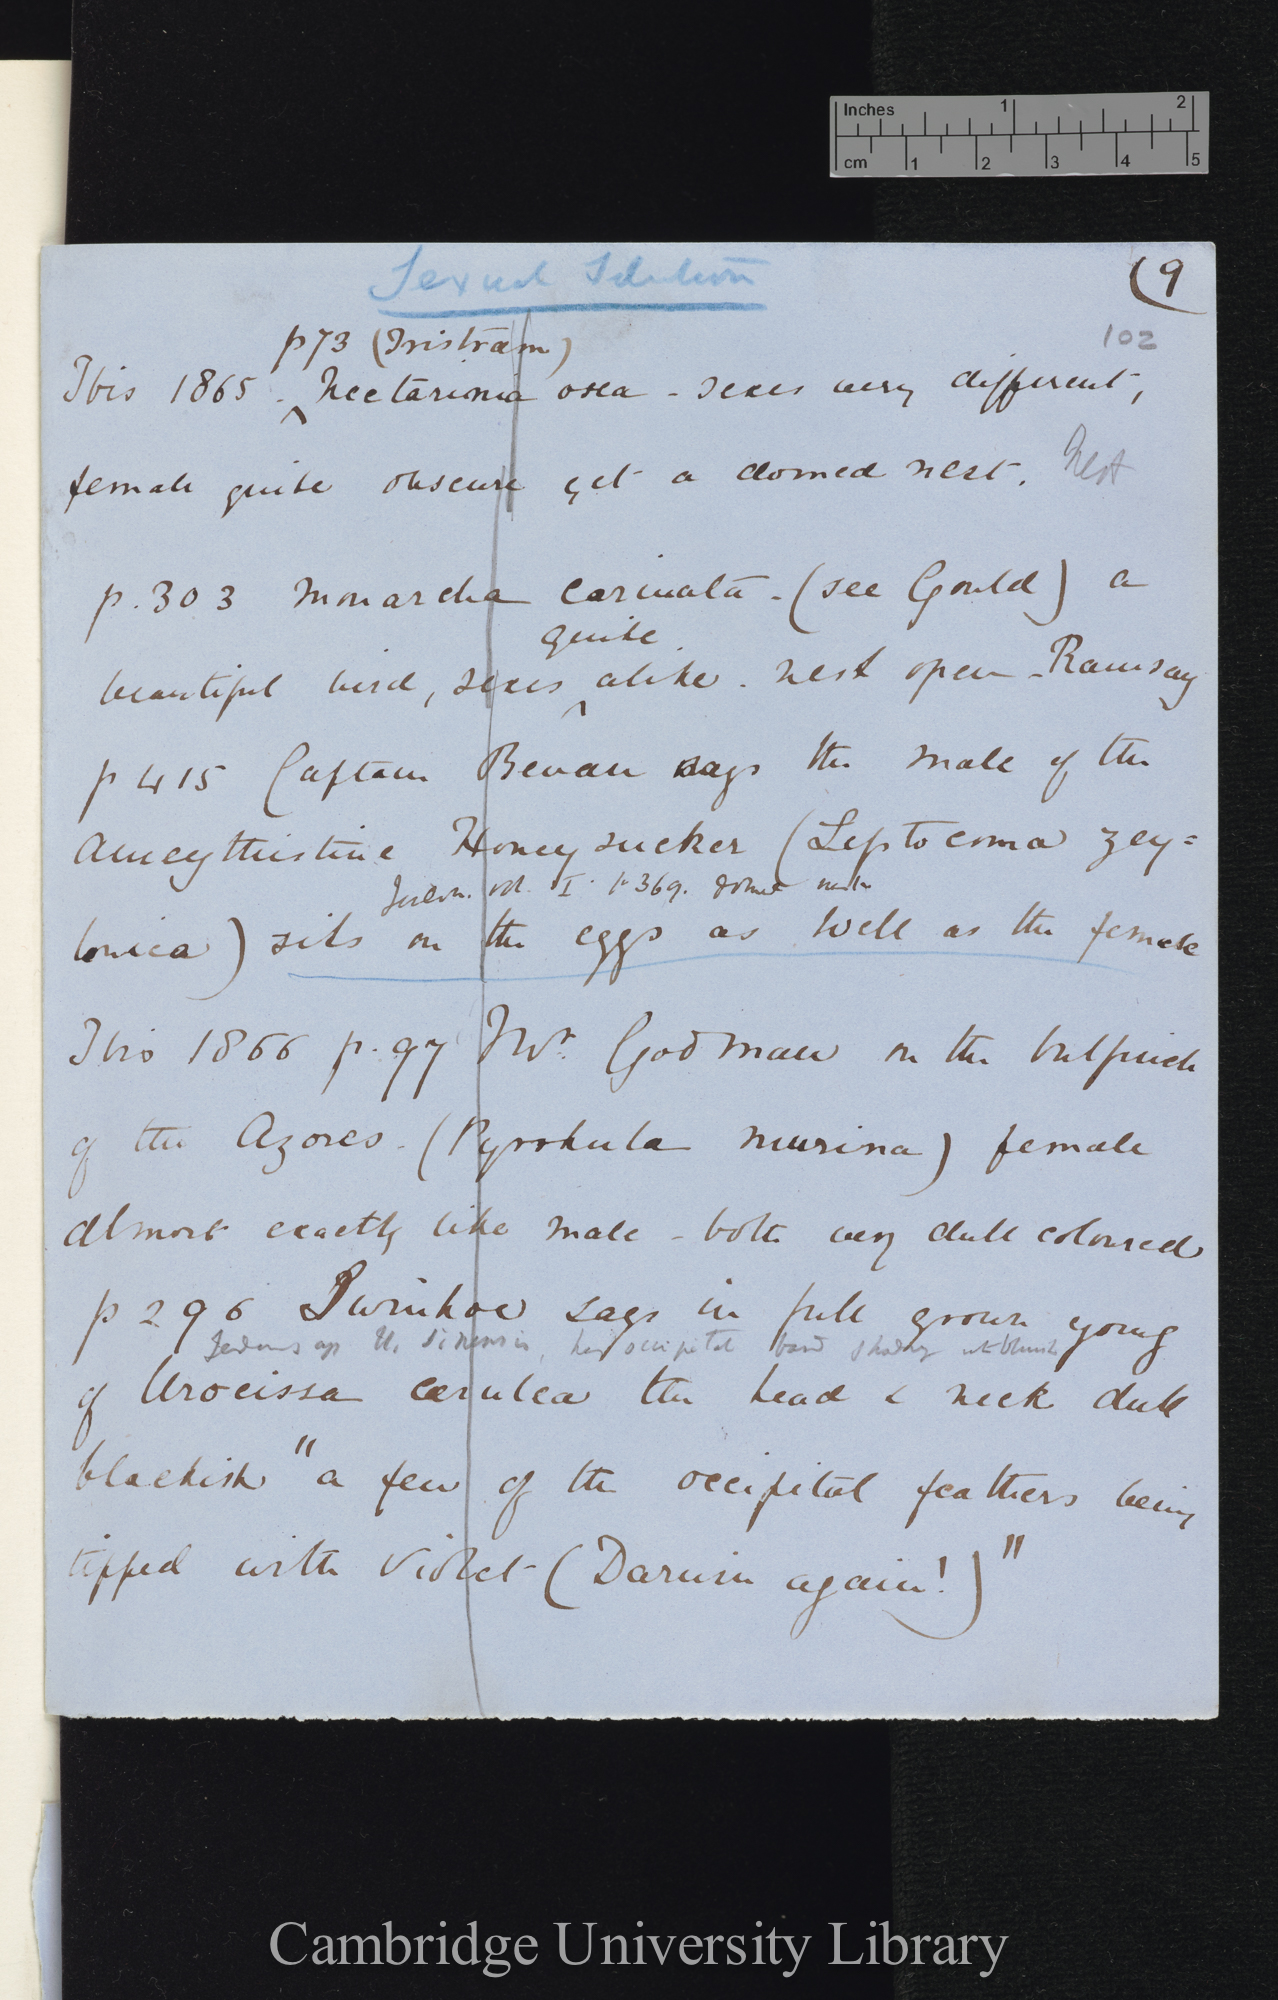 Inches 1 2
cm 1 2 3 4 5
Sexual Selection
(9
102
p73 (Tristram)
Ibis 1865. Nectarinia osea - sexes very different,
female quite obscure yet a domed nest. Nest
p.303 Monarcha carinata - (see Gould) a
quite
beautiful bird, sexes alike. nest open - Ramsay
p 415 Captain Bevan says the male of the
Ameythistine Honeysucker (Leptocoma zey=
Jerdon. vol. I. p 369. domed nests
lonica) sits on the eggs as well as the female
Ibis 1866 p.97 Mr. Godman on the bulfinch
of the Azores. (Pyrrhula murina) female
almost exactly like male - both very dull coloured
p 296 Swinhoe says in full grown young
Jerdon says U. sinensis, has occipital band shading
of Urocissa cœrulea the head & neck dull
blackish "a few of the occipital feathers being
tipped with violet (Darwin again!)"
Cambridge University Library